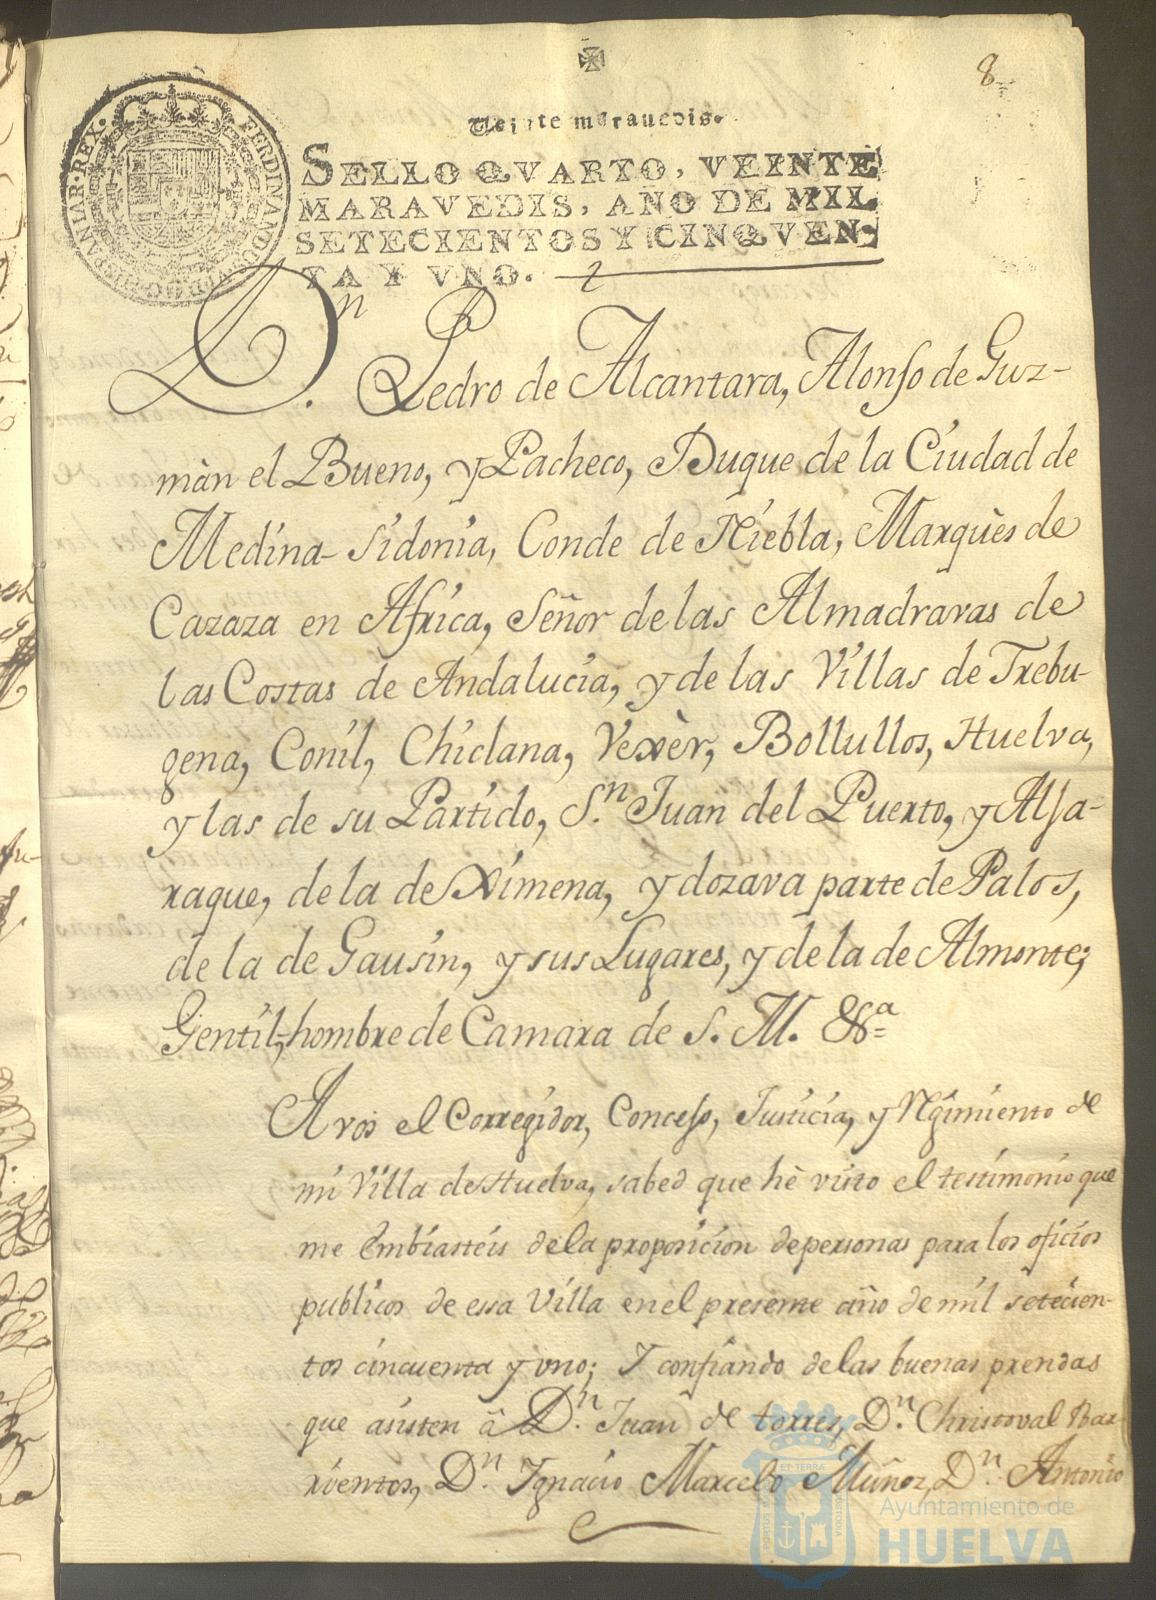 8
Veinte marauedis.
SELLO QVARTO, VEINTE
MARAVEDIS, AÑO DE MIL
SETECIENTOS Y CINQVEN-
TA Y VNO.
FERDINANDUS VI D.G. HISPANIAR. REX.
Dn. Pedro de Alcantara, Alonso de Guz-
màn el Bueno, y Pacheco, Duque de la Ciudad de
Medina-Sidonia, Conde de Niebla, Marquès de
Cazaza en Africa, Señor de las Almadravas de
las Costas de Andalucia, y de las Villas de Trebu-
gena, Conil, Chiclana, Vexèr, Bollullos, Huelva,
y las de su Partido, Sn. Juan del Puerto, y Alja-
raque, de la de Ximena, y dozava parte de Palos,
de la de Gausin, y sus Lugares, y de la de Almonte;
Gentil-hombre de Camara de S. M. &a
A vos el Corregidor, Concejo, Justicia, y Rgimiento de
mi Villa de Huelva, sabed que hè visto el testimonio que
me embiasteis de la proposicion de personas para los oficios
publicos de essa Villa en el presente año de mil setecien-
tos cincuenta y uno; Y confiando de las buenas prendas
que asisten â Dn. Juan de torres, Dn. Christoval Bar-
rientos, Dn. Ygnacio Marcelo Muñoz, Dn. Antonio
Ayuntamiento de
HUELVA